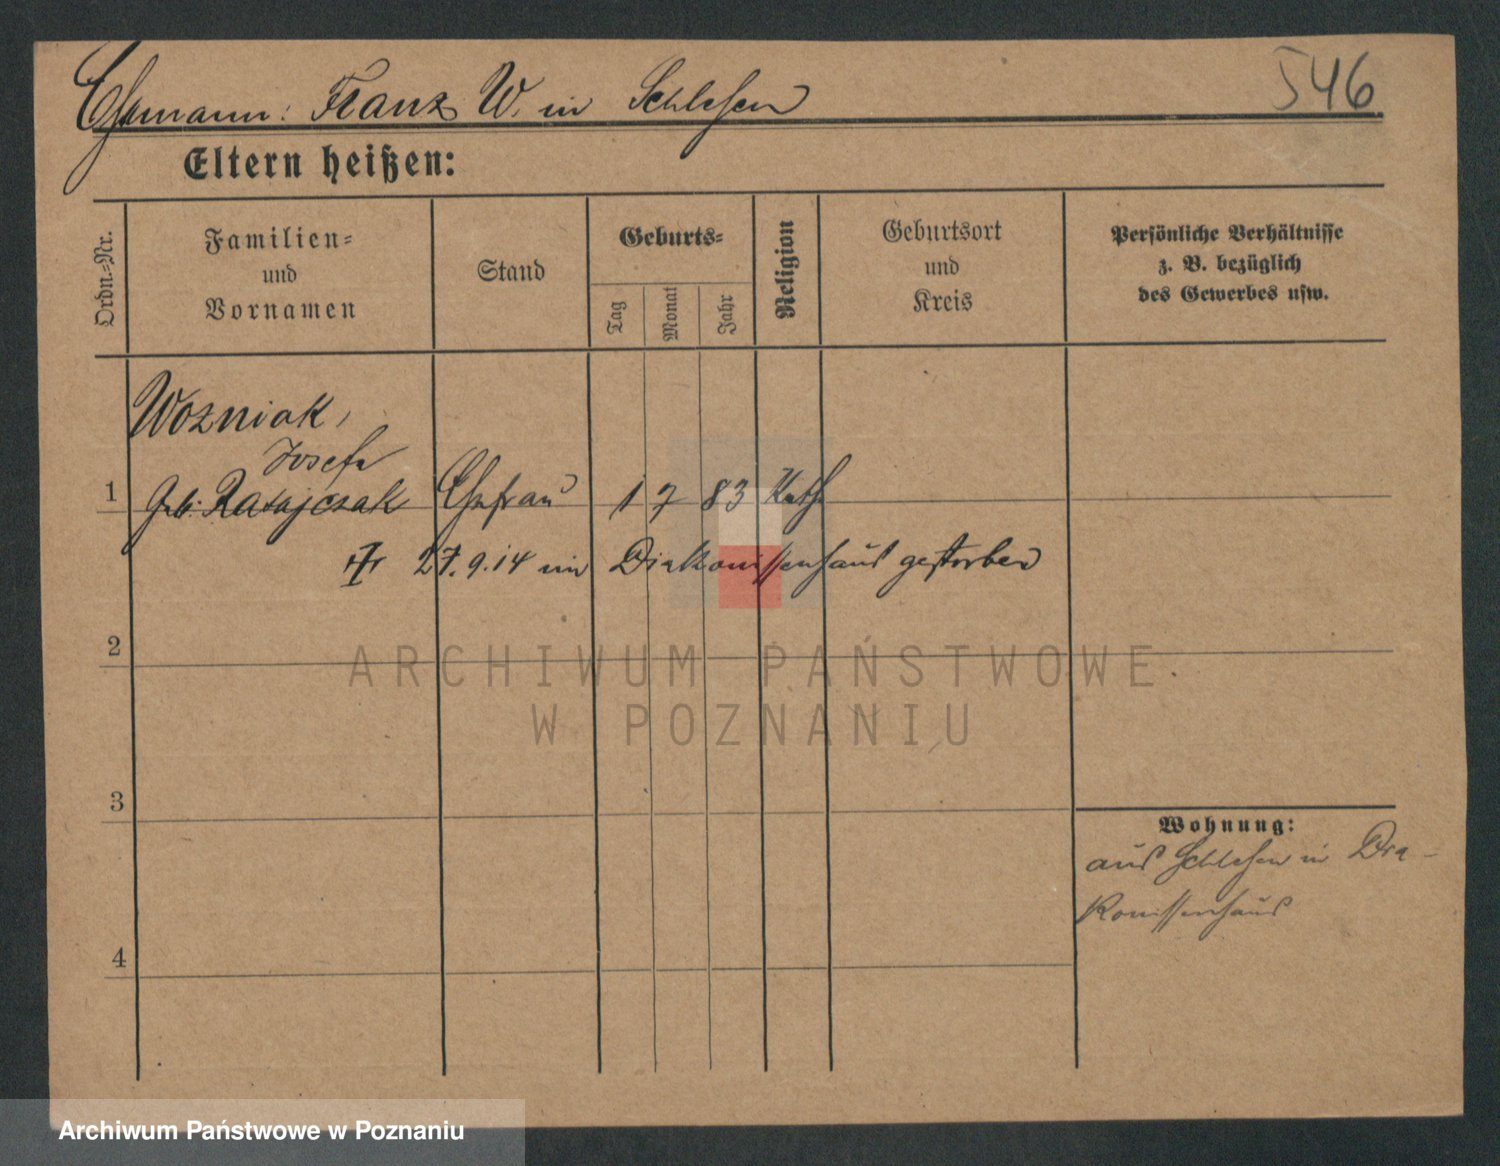 Ehemann: Franz W. in Schlehen
546
Eltern heißen:
Ordn.=Nr.
Familien=
und
Vornamen
Stand
Geburts=
Tag
Monat
Jahr
Religion
Geburtsort
und
Kreis
Persönliche Verhältnisse
z. B. bezüglich
des Gewerbes usw.
Wozniak,
Josefa
1 geb. Ratajczak Ehefrau 1 7 83 Kath
27.9.14 im Diakonissenhaus gestorben
2
ARCHIWUM PAŃSTWOWE
W POZNANIU
3
Wohnung:
aus Schlehen in Dia-
konissenhaus
4
Archiwum Państwowe w Poznaniu